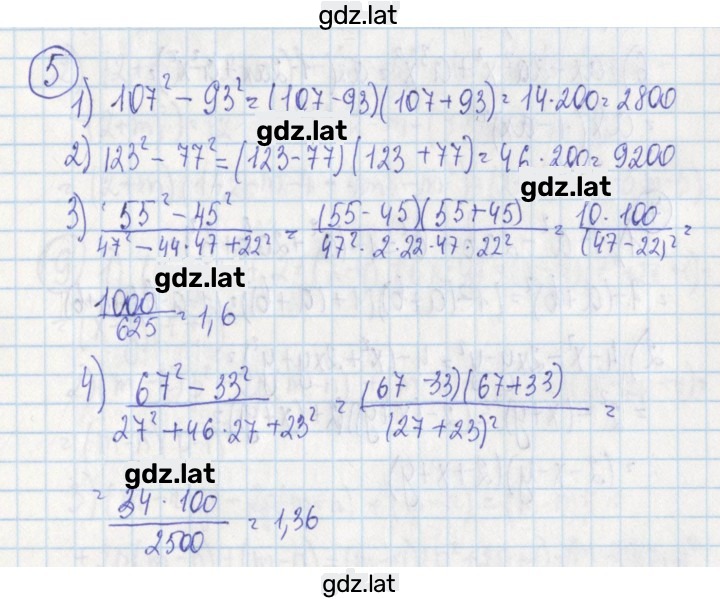 gdz.lat
5
1) 107² - 93² = (107-93)(107+93) = 14·200 = 2800
gdz.lat
2) 123² - 77² = (123-77)(123+77) = 46·200 = 9200
gdz.lat
3) (55² - 45²)/(47² - 44·47 + 22²) = ((55-45)(55+45))/(47² · 2·22·47 : 22²) = (10·100)/(47-22)² =
gdz.lat
1000/625 = 1,6
4) (67² - 33²)/(27² + 46·27 + 23²) = ((67-33)(67+33))/(27+23)² =
gdz.lat
= (34·100)/2500 = 1,36
gdz.lat